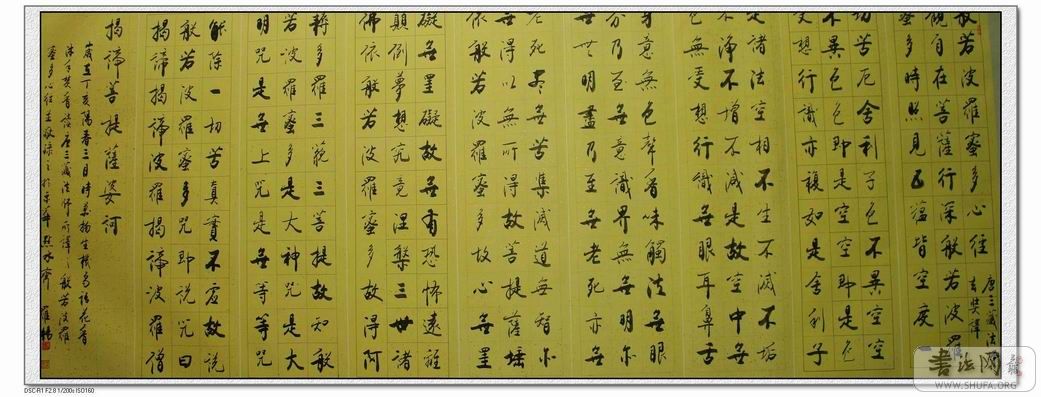 般若波羅蜜多心経
唐三藏法
玄奘譯
觀自在菩薩行深般若波羅
蜜多時照見五蘊皆空度
切苦厄舍利子色不異空空
不異色色即是空空即是色
想行識亦複如是舍利子
諸法空相不生不滅不垢
不淨不增不減是故空中無
無受想行識無眼耳鼻舌
身意無色聲香味觸法無眼
界乃至無意識界無無明亦
無無明盡乃至無老死亦無
老死盡無苦集滅道無智亦
無得以無所得故菩提薩埵
依般若波羅蜜多故心無罣
礙無罣礙故無有恐怖遠離
顛倒夢想究竟涅槃三世諸
佛依般若波羅蜜多故得阿
耨多羅三藐三菩提故知般
若波羅蜜多是大神咒是大
明咒是無上咒是無等等咒
能除一切苦真實不虛故說
般若波羅蜜多咒即說咒曰
揭諦揭諦波羅揭諦波羅僧
揭諦菩提薩婆訶
歲在丁亥陽春三月時萬物生機鳥語花香
沐手焚香 唐三藏法師所譯之般若波羅
蜜多心経並敬録之於京華 水齋 羅楊
书法网
WWW.SHUFA.ORG
DSC-R1 F2.8 1/200s ISO160